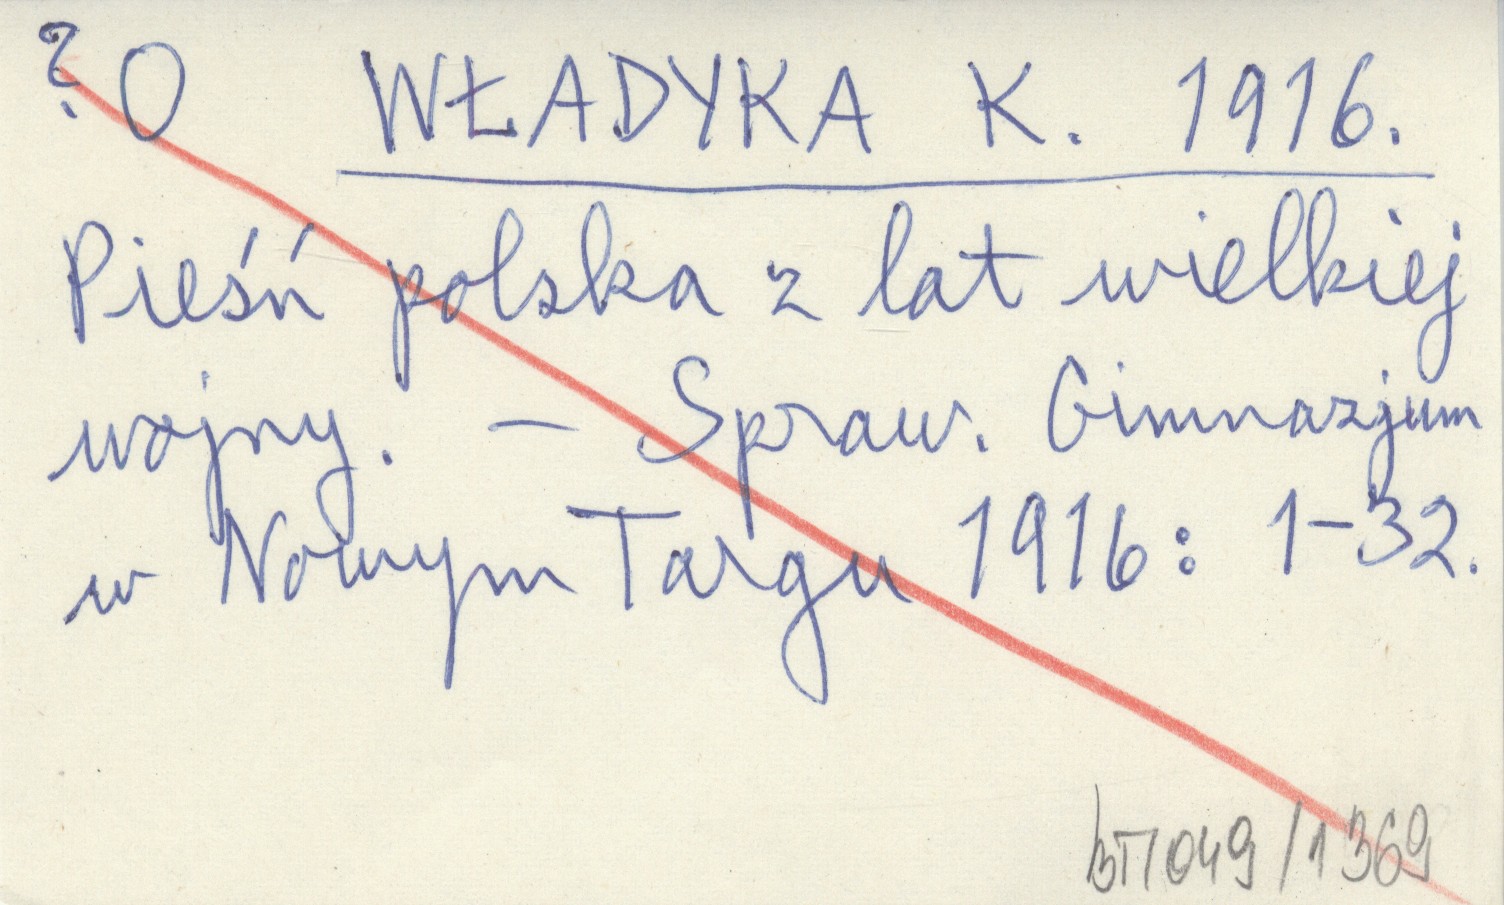 ? O WŁADYKA K. 1916.
Pieśń polska z lat wielkiej
wojny. – Spraw. Gimnazjum
w Nowym Targu 1916: 1–32.
BT/049/1369